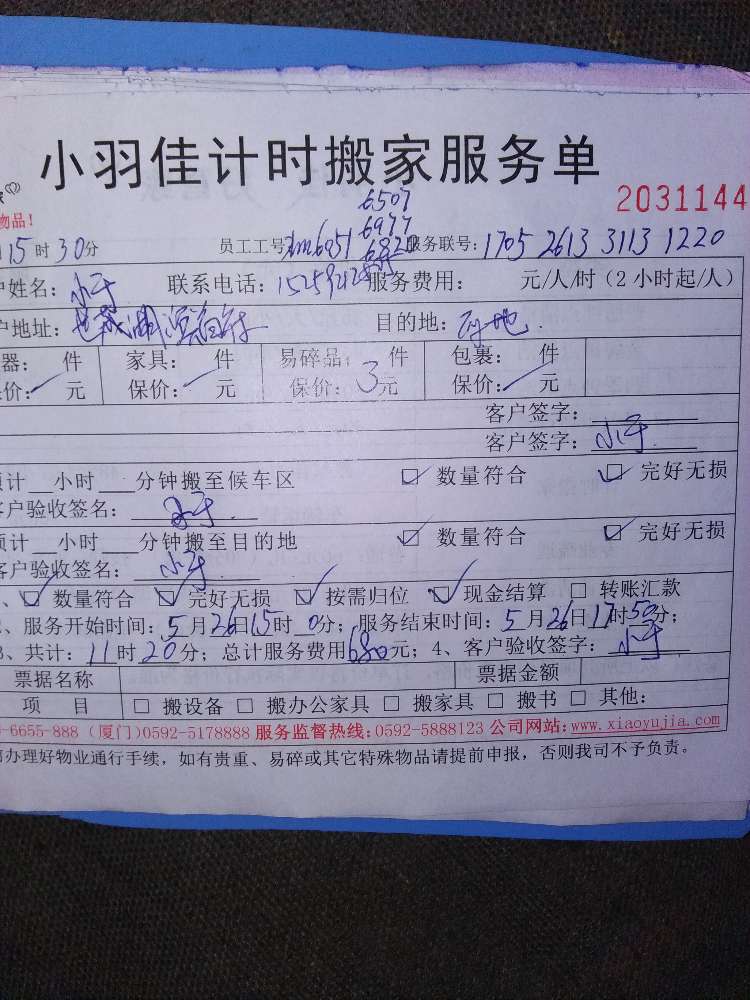 小羽佳计时搬家服务单
2031144
物品!
6507
6977
月15时30分 员工工号: 6951 服务联号: 1705 2613 3113 1220
户姓名: 联系电话: 服务费用: 元/人/时(2小时起/人)
户地址: 目的地:
器: 件 家具: 件 易碎品: 件 包裹: 件
保价: 元 保价: 元 保价: 3元 保价: 元
客户签字:
客户签字:
预计__小时___分钟搬至候车区 ☑ 数量符合 ☑ 完好无损
客户验收签名:
预计__小时___分钟搬至目的地 ☑ 数量符合 ☑ 完好无损
客户验收签名:
、☑ 数量符合 ☑ 完好无损 ☑ 按需归位 ☑ 现金结算 □ 转账汇款
、服务开始时间: 5月26日15时 0分; 服务结束时间: 5月26日17时50分;
3、共计: 11时20分; 总计服务费用680元; 4、客户验收签字:
票据名称 票据金额
项 目 □ 搬设备 □ 搬办公家具 □ 搬家具 □ 搬书 □ 其他:
-6655-888 (厦门)0592-5178888 服务监督热线:0592-5888123 公司网站:www.xiaoyujia.com
办理好物业通行手续, 如有贵重、易碎或其它特殊物品请提前申报, 否则我司不予负责。